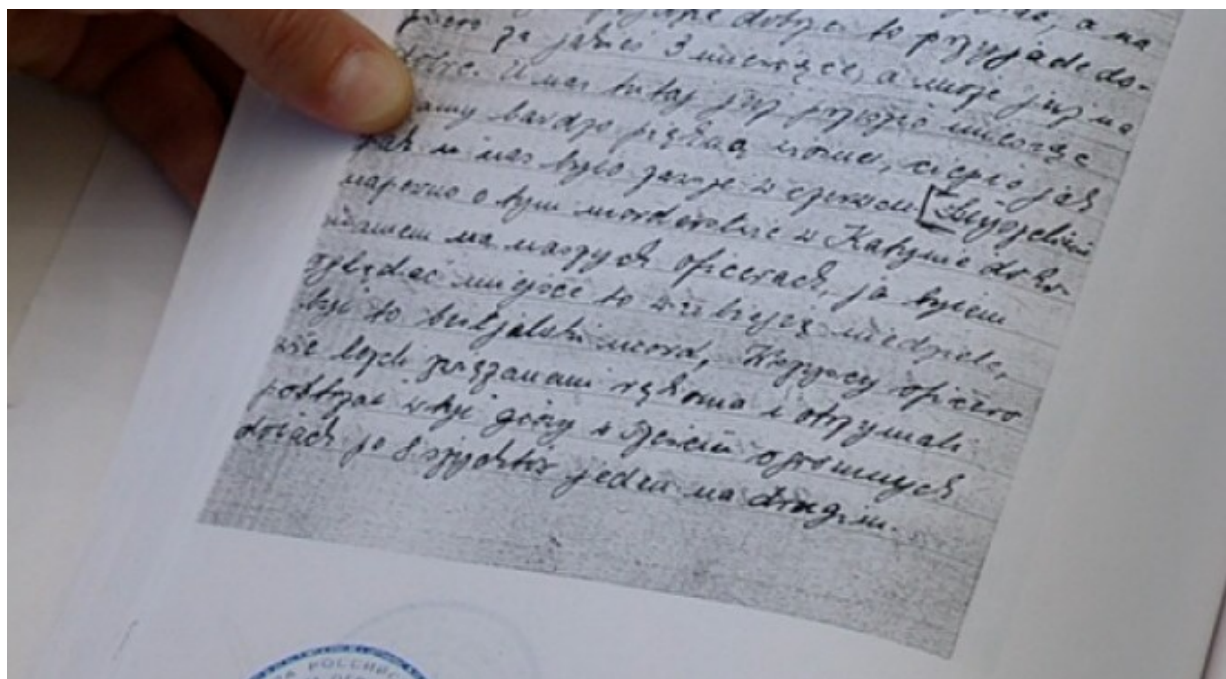 dobrze to przyjadę do-
za jakieś 3 miesiące, a może już na
U nas tutaj już przeszło miesiąc
mamy bardzo piękną wiosnę, ciepło jak
jak u nas było zawsze w czerwcu. [Słyszeliście
napewno o tym morderstwie w Katynie doko-
nanem na naszych oficerach, ja byłem
oglądać miejsce to ubiegłą niedzielę,
był to bestjalski mord, Wszyscy oficero
wie byli związani rękoma i otrzymali
postrzał w tył głowy w sześciu ogromnych
dołach po 8 szychtów jeden na drugim.
РОССИЙС